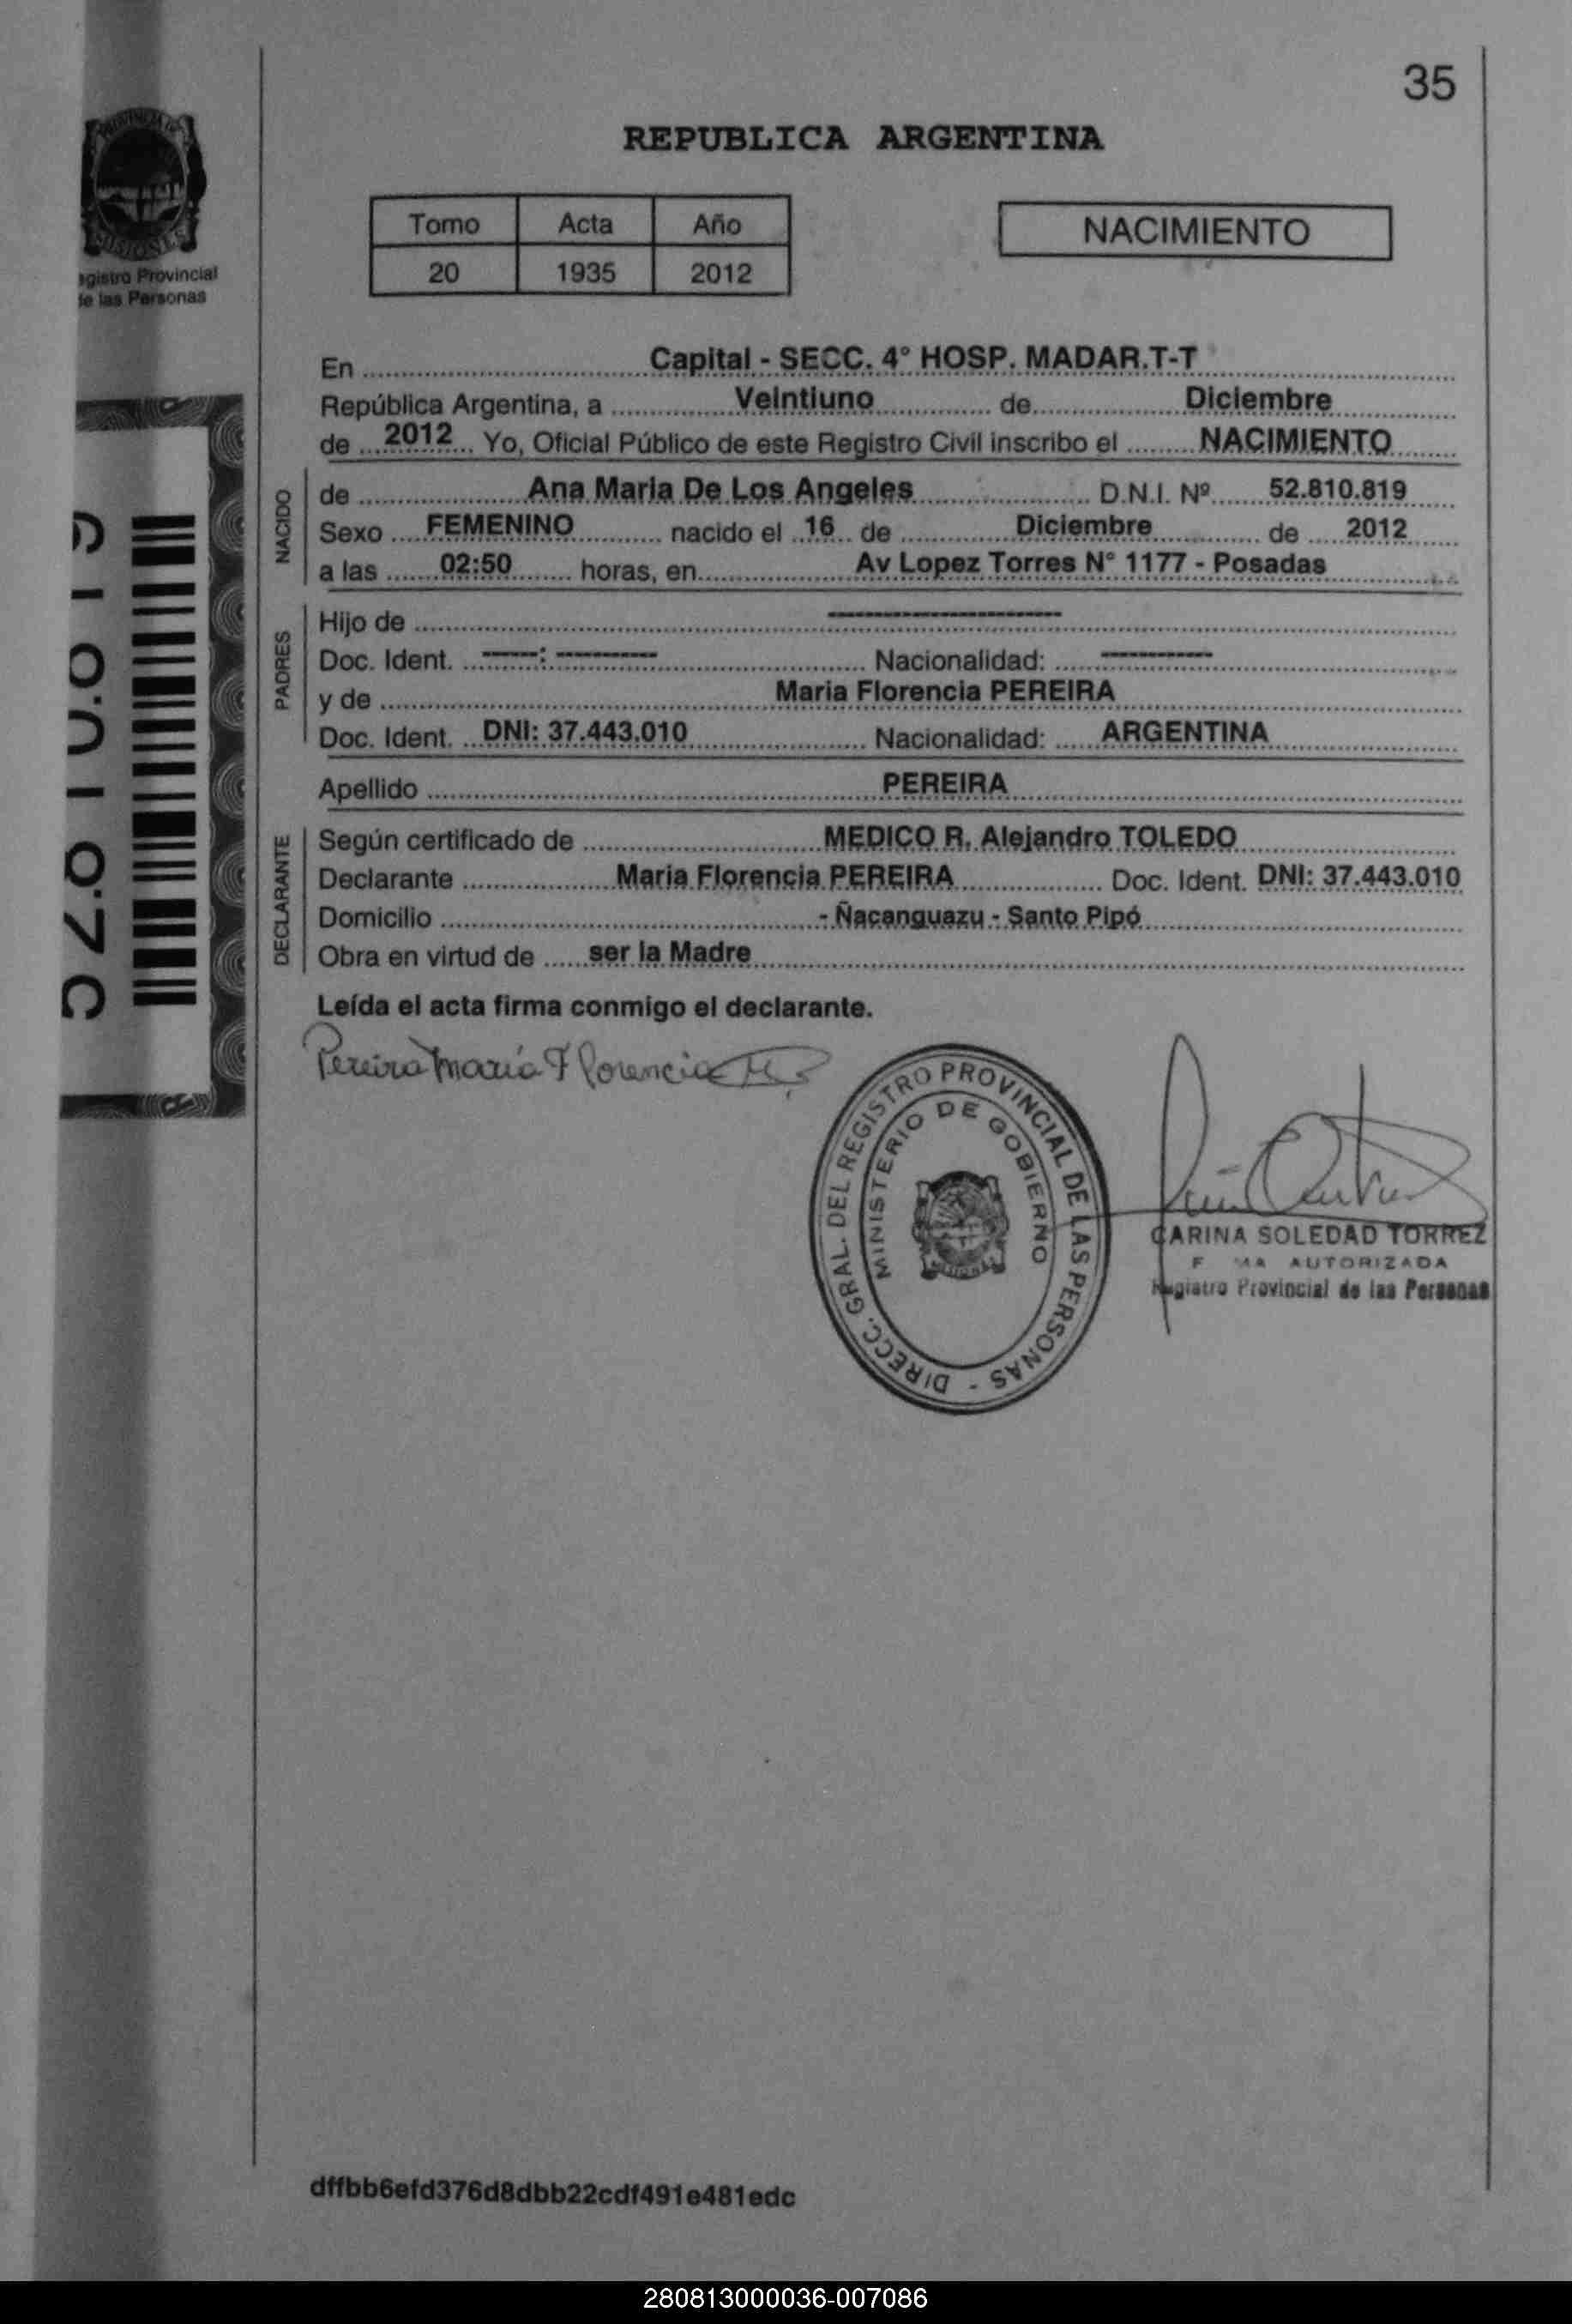 35
REPUBLICA ARGENTINA
Tomo Acta Año
20 1935 2012
NACIMIENTO
PROVINCIA DE
MISIONES
egistro Provincial
de las Personas
En Capital - SECC. 4° HOSP. MADAR.T-T
República Argentina, a Veintiuno de Diciembre
de 2012 Yo, Oficial Público de este Registro Civil inscribo el NACIMIENTO
NACIDO
de Ana Maria De Los Angeles D.N.I. Nº 52.810.819
Sexo FEMENINO nacido el 16 de Diciembre de 2012
a las 02:50 horas, en Av Lopez Torres N° 1177 - Posadas
PADRES
Hijo de ----------
Doc. Ident. ----: ---------- Nacionalidad: ----------
y de Maria Florencia PEREIRA
Doc. Ident. DNI: 37.443.010 Nacionalidad: ARGENTINA
Apellido PEREIRA
DECLARANTE
Según certificado de MEDICO R. Alejandro TOLEDO
Declarante Maria Florencia PEREIRA Doc. Ident. DNI: 37.443.010
Domicilio - Ñacanguazu - Santo Pipó
Obra en virtud de ser la Madre
Leída el acta firma conmigo el declarante.
Pereira María Florencia
DIRECC. GRAL. DEL REGISTRO PROVINCIAL DE LAS PERSONAS -
MINISTERIO DE GOBIERNO
MISIONES
CARINA SOLEDAD TORREZ
AUTORIZADA
Registro Provincial de las Personas
dffbb6efd376d8dbb22cdf491e481edc
280813000036-007086